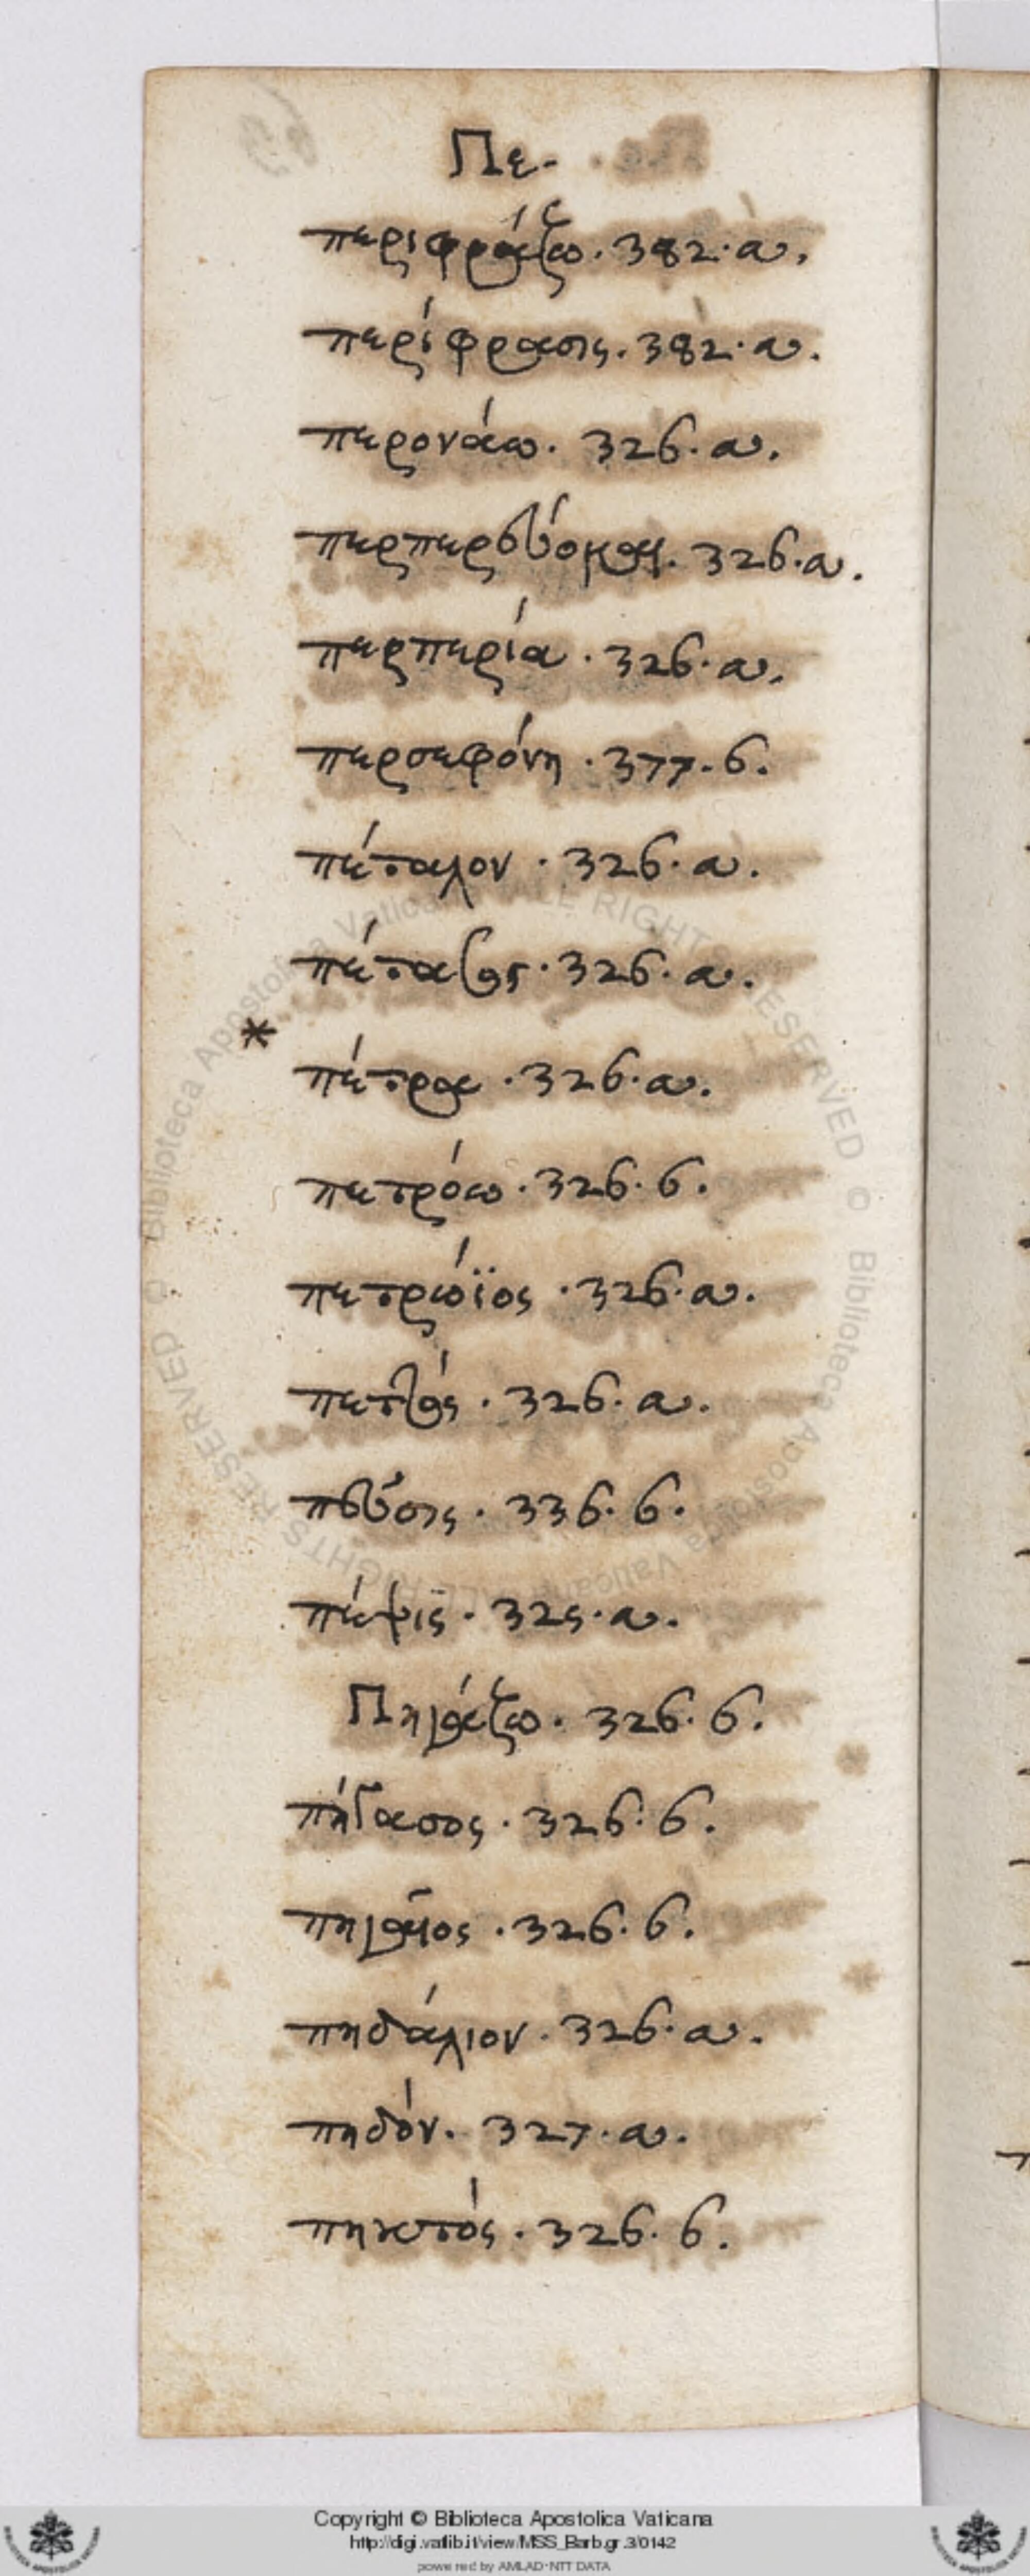 Πε.
περιφράζω. 382. α.
περίφρασις. 382. α.
περονάω. 326. α.
περπερεύομαι. 326. α.
περπερία. 326. α.
περσεφόνη. 377. β.
πέταλον. 326. α.
πέτασος. 326. α.
* πέτρα. 326. α.
πετρόω. 326. β.
πετρώϊος. 326. α.
πεττός. 326. α.
πεύσις. 336. β.
πέψις. 325. α.
Πηγάζω. 326. β.
πήγασος. 326. β.
πηγαῖος. 326. β.
πηδάλιον. 326. α.
πηδόν. 327. α.
πηκτός. 326. β.
Copyright © Biblioteca Apostolica Vaticana
http://digi.vatlib.it/view/MSS_Barb.gr.3/0142
powered by AMLAD-NTT DATA